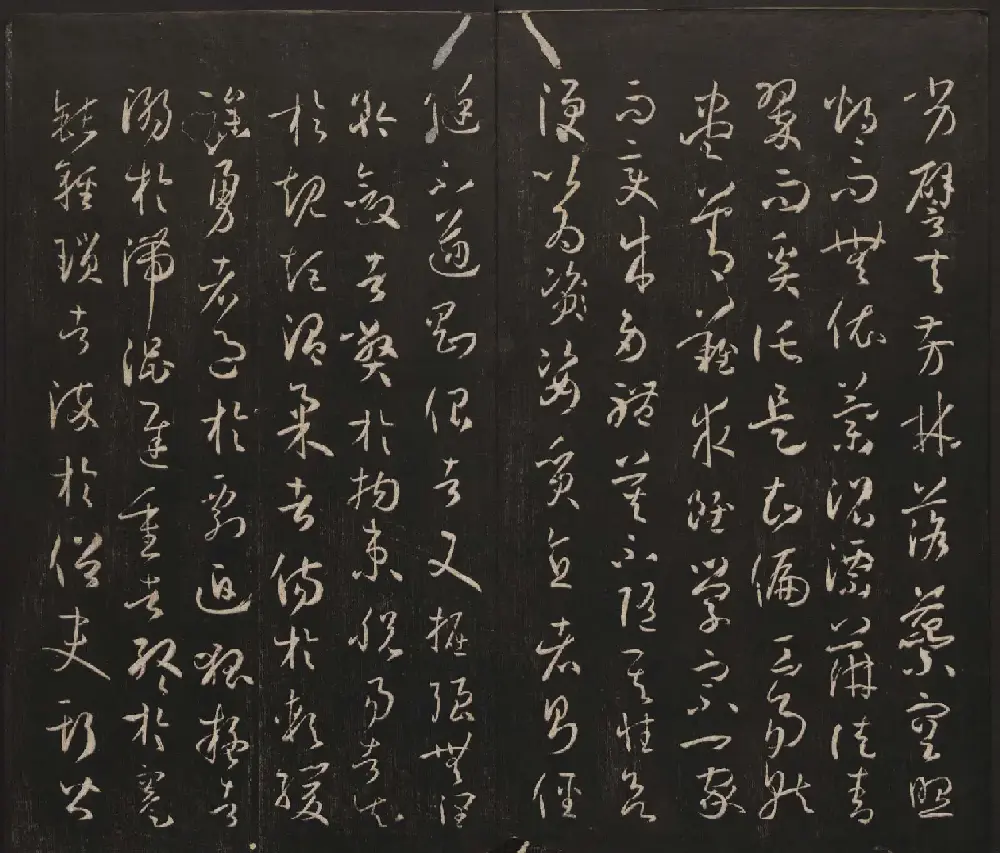 劣譬夫芳林落蘂空照
灼而無依蘭沼漂蓱徒青
翠而奚託是知偏工易就
盡善難求雖學宗一家
而變成多體莫不隨其性欲
便以為資姿質直者則俓
侹不遒剛佷者又掘強無潤
矜斂者弊於拘束脫易者失
於規矩溫柔者傷於軟緩
躁勇者過於剽迫狐疑者
溺於滯澀遲重者終於蹇
鈍輕瑣者淬於俗吏斯皆